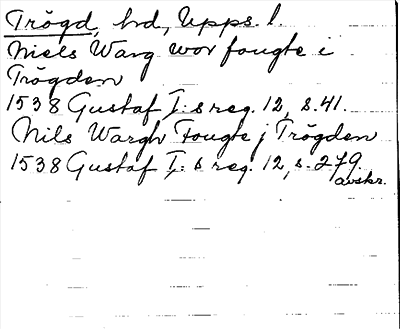 Trögd, hd, Upps. l.
Niels Warg wor fougte i
Trögden
1538 Gustaf I:s reg. 12, s. 41.
Nils Wargh Fougte j Trögden
1538 Gustaf I:s reg. 12, s. 279.
avskr.